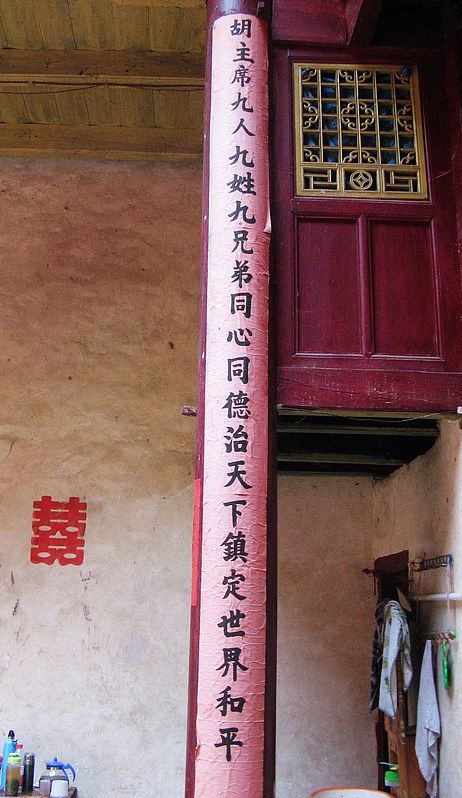 胡主席九人九姓九兄弟同心同德治天下鎮定世界和平
囍